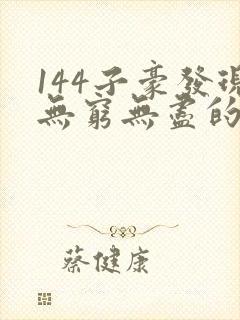 144子豪發現
無窮無盡的
蔡健康